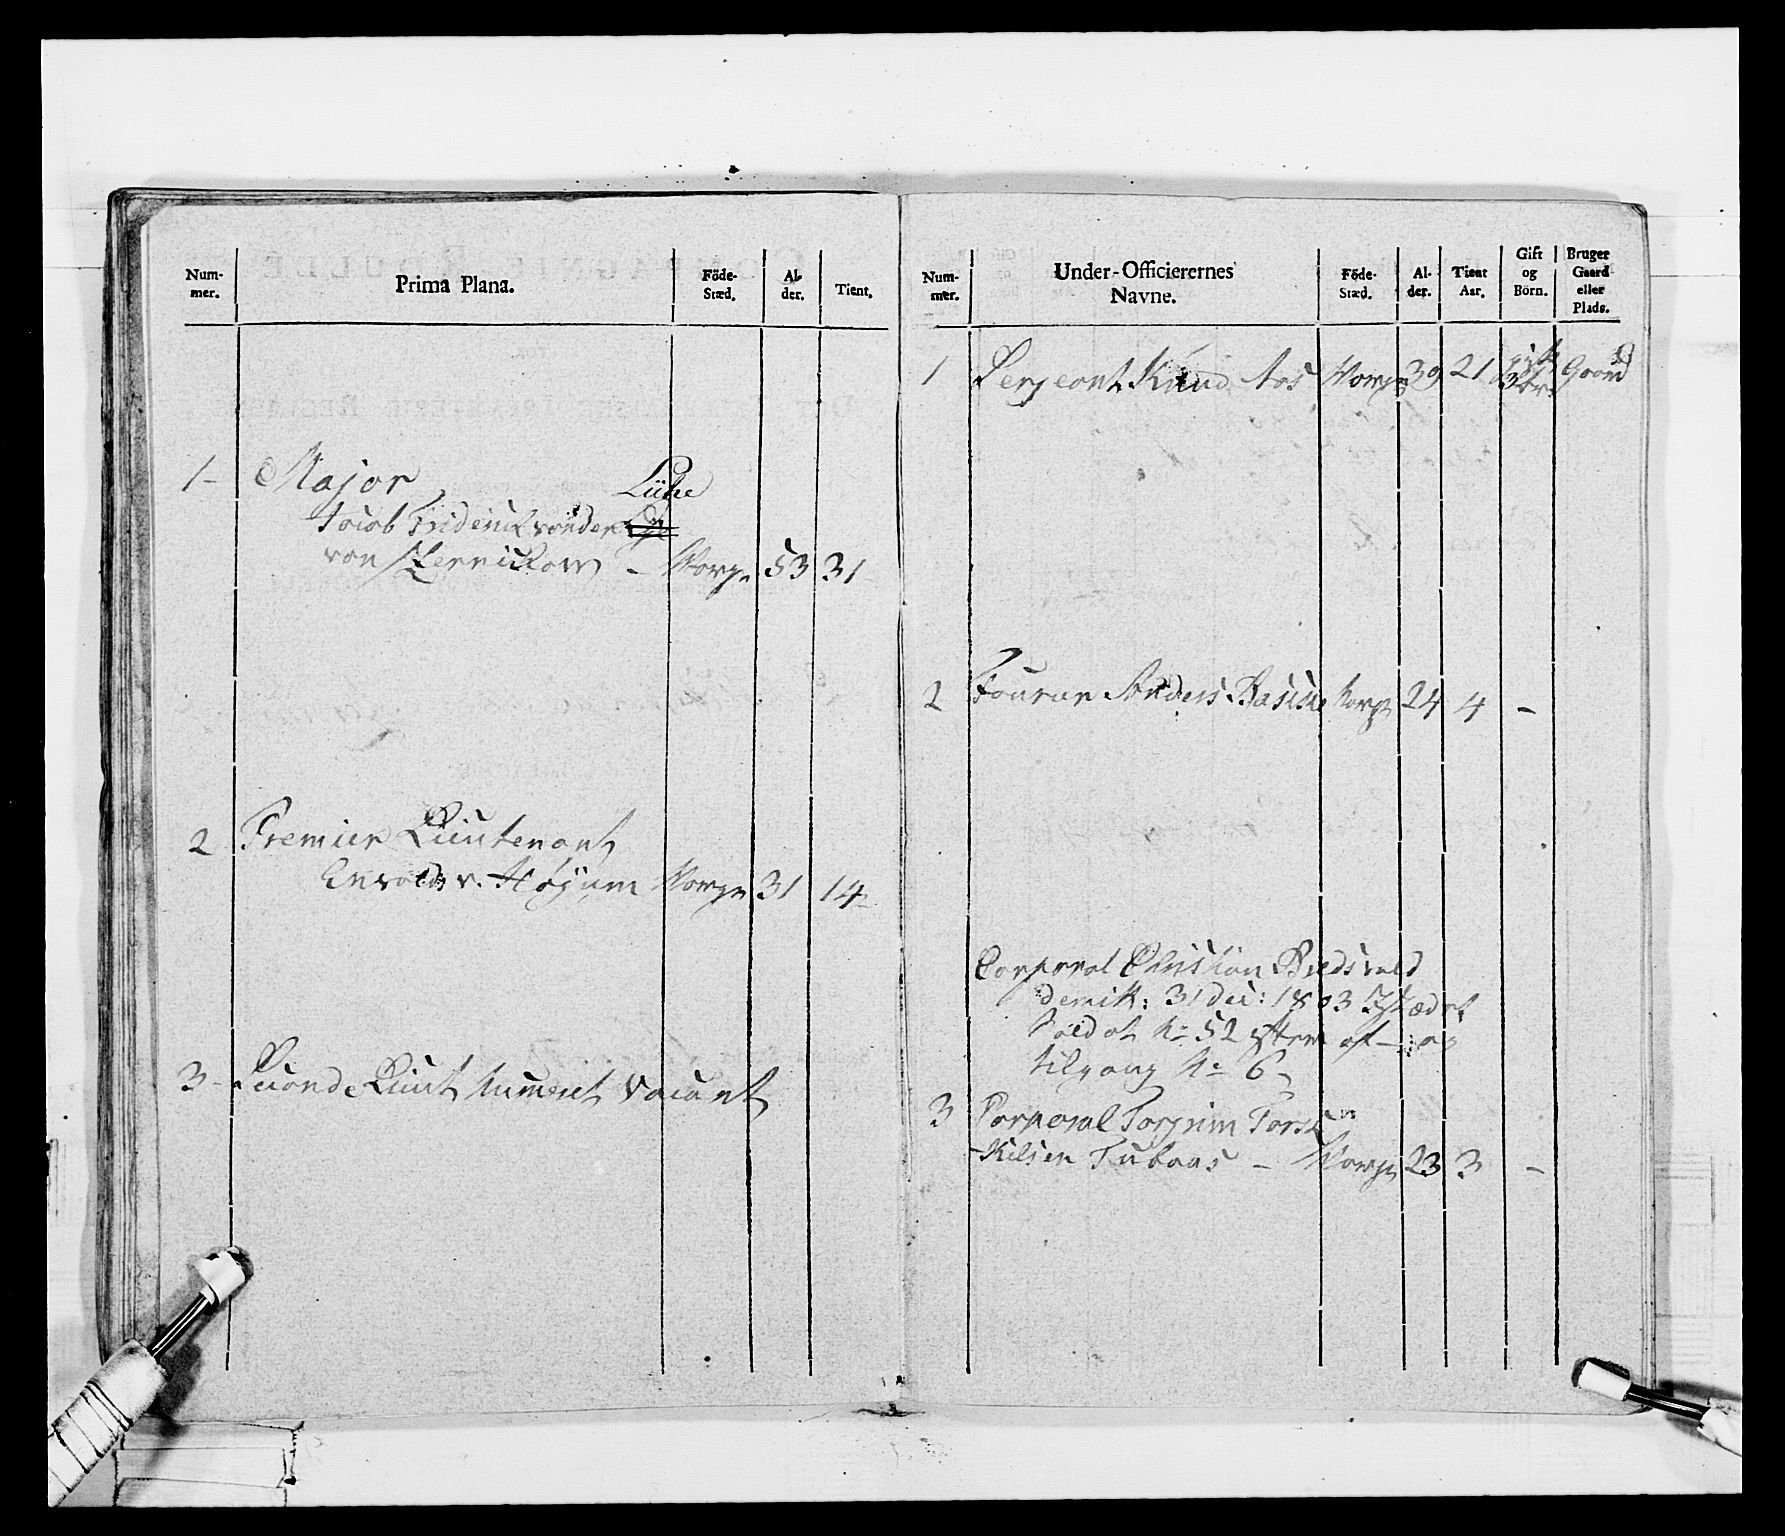 Num-
mer.
Prima Plana.
Föde-
Stæd.
Al-
der.
Tient.
1 - Major
Lühe
Jacob Friderich von der
von Zernickow - Norge 53 31
2 Premier Lieutenant
Envold v. Høyum Norge 31 14
3 - Second Lieut Numeret vacant
Num-
mer.
Under-Officierernes
Navne.
Föde-
Stæd.
Al-
der.
Tient
Aar.
Gift
og
Börn.
Bruger
Gaard
eller
Plads.
1 Sergeant Knud Aas Norge 39 21 gift 3 Gaard
2 Fourer Anders Basche Norge 24 4 -
Corporal Christian
demit: 31 Dec: 1803
Soldat No 52 af
tilgang No 6
3 Corporal Torgrim Torst
Kilsen - Norge 23 3 -